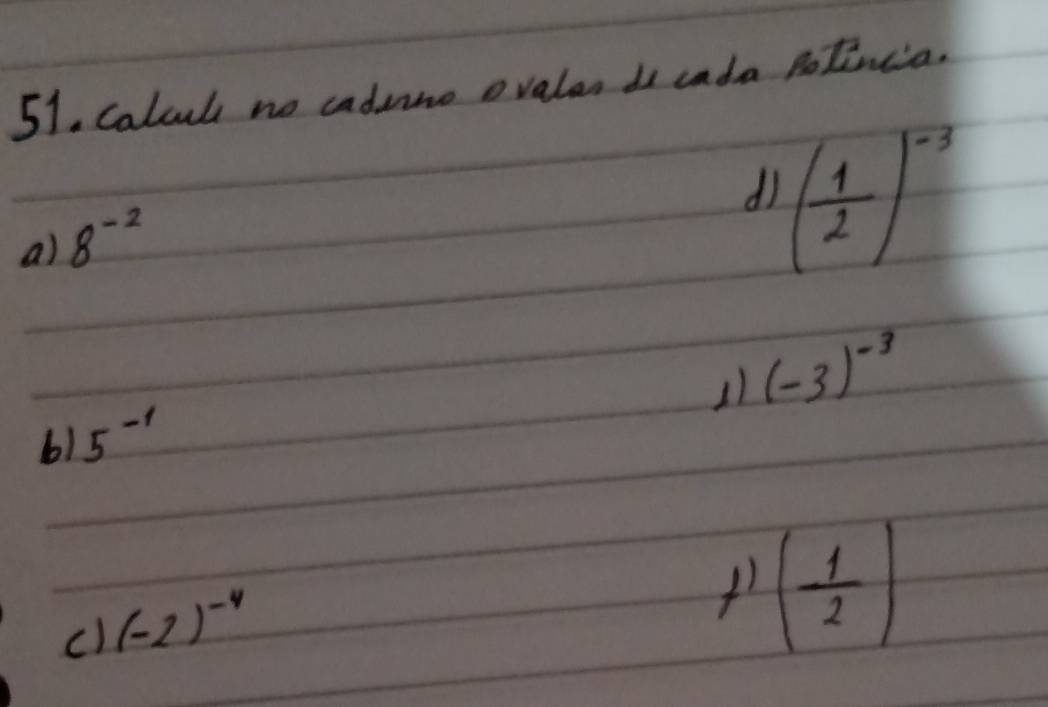 51. Calcule no caderno o valor de cada potência.
a) 8⁻²
d) (1/2)⁻³
b) 5⁻¹
e) (-3)⁻³
c) (-2)⁻⁴
f) (1/2)